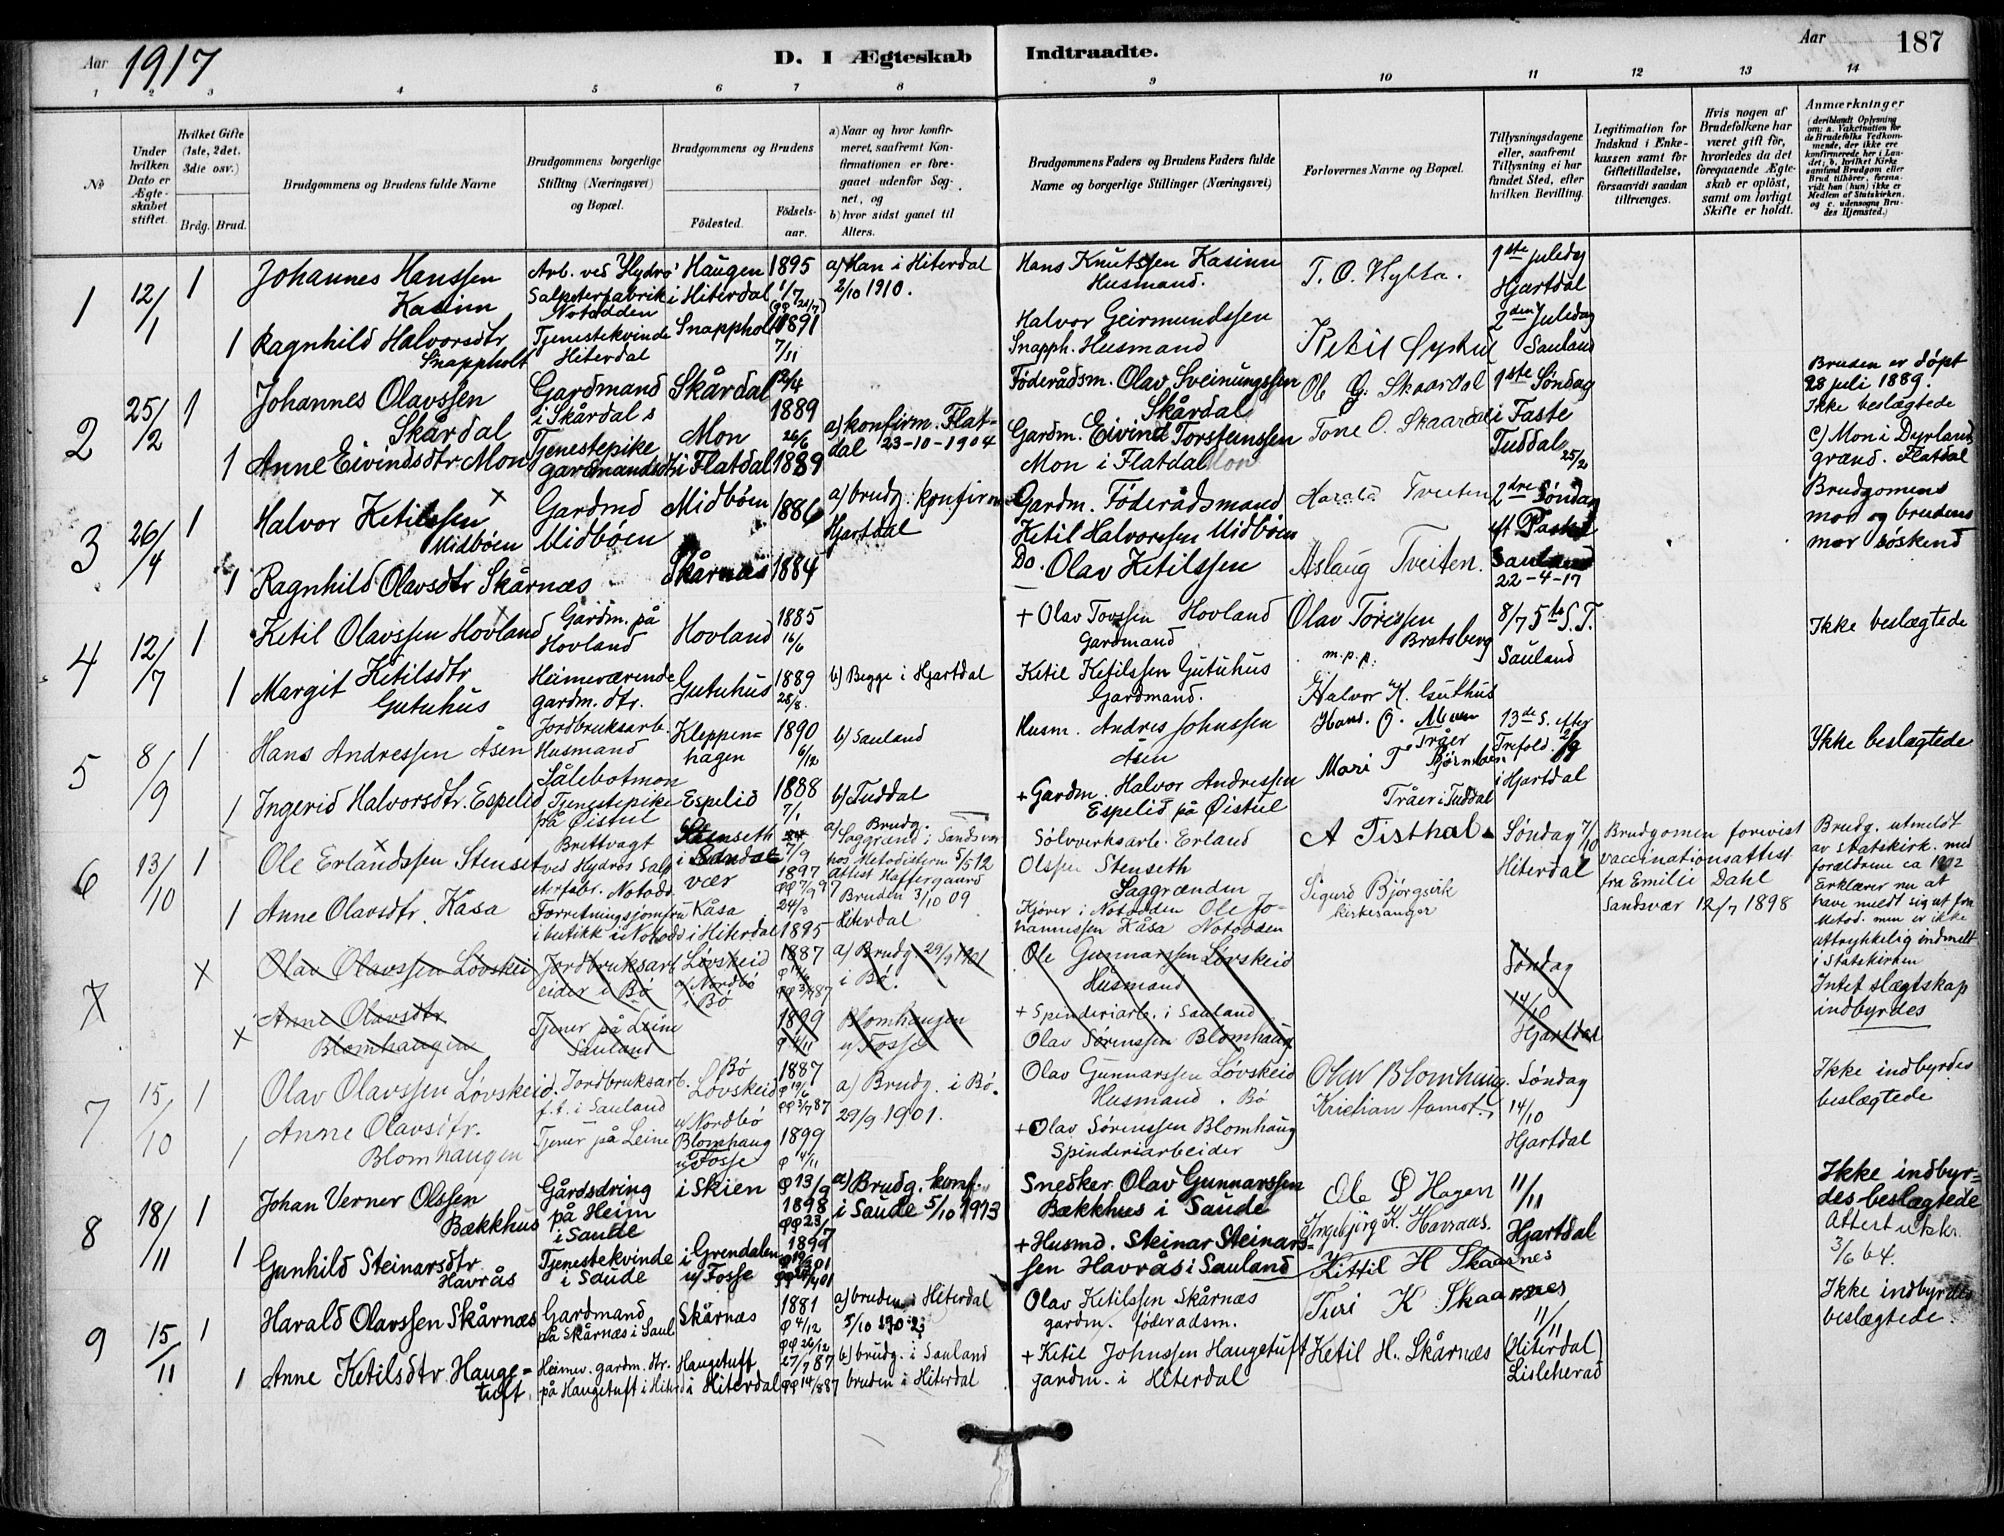 Aar 1917
D. I Ægteskab Indtraadte.
Aar 187
1 2 3 4 5 6 7 8 9 10 11 12 13 14
No
Under hvilken Dato er Ægteskabet stiftet.
Hvilket Gifte (1ste, 2det, 3die osv.)
Brdg. Brud.
Brudgommens og Brudens fulde Navne
Brudgommens borgerlige Stilling (Næringsvei) og Bopæl.
Brudgommens og Brudens
Födested.
Födselsaar.
a) Naar og hvor konfirmeret, saafremt Konfirmationen er foregaaet udenfor Sognet, og
b) hvor sidst gaaet til Alters.
Brudgommens Faders og Brudens Faders fulde Navne og borgerlige Stillinger (Næringsvei)
Forlovernes Navne og Bopæl.
Tillysningsdagene eller, saafremt Tillysning ei har fundet Sted, efter hvilken Bevilling.
Legitimation for Indskud i Enkekassen samt for Giftetilladelse, forsaavidt saadan tiltrænges.
Hvis nogen af Brudefolkene har været gift för, hvorledes da det foregaaende Ægteskab er oplöst, samt om lovligt Skifte er holdt.
Anmærkninger
(deriblandt Oplysning om: a. Vakcination for de Brudefolks Vedkommende, der ikke ere konfirmerede her i Landet; b. hvilket Kirkesamfund Brudgom eller Brud tilhörer, forsaavidt han (hun) ikke er Medlem af Statskirken, og c. udensogns Brudes Hjemsted.)
1 12/1 1 Johannes Hanssen
Kasinn
Arb. ved Hydro
Salpeterfabrik
Notodden
Haugen
i Hiterdal
1895
1/7
a) Han i Hiterdal
2/10 1910.
Hans Knutssen Kasinn
Husmand.
T. O. Hylta.
1ste juledg
Hjartdal
1 Ragnhild Halvorsdtr
Snappholt
Tjenestekvinde
Hiterdal
Snappholt
1891
7/11
Halvor Geirmundssen
Snapph. Husmand
2den juledag
Sauland
2 25/2 1 Johannes Olavssen
Skårdal
Gardmand
i Skårdal
Skårdal
1889
Föderådsm. Olav Sveinungssen
Skårdal
Ole G. Skaardal
1ste Søndag
i Faste
Tuddal
25/2
Bruden er døpt
28 juli 1889.
Ikke beslægtede
1 Anne Eivindsdtr. Mon
Tjenestepike
Mon
i Flatdal
26/6
1889
a) konfirm. Flatdal
23-10-1904
Gardm. Eivind Torsteinssen
Mon i Flatdal
Tone O. Skaardal
c) Mon i Dyrland
grænd. Flatdal
3 26/4 1 Halvor Ketilssen
Midbøen
Gardmd
Midbøen
Midbøen
1886
a) brudg. konfirm
Hjartdal
Gardm. Föderådsmand
Ketil Halvorssen Midbøen
Harald Tveiten
2dre Søndag
eft Paske
Sauland
22-4-17
Brudgomens
mor og brudens
mor søskend
1 Ragnhild Olavsdtr Skårnæs
Skårnæs
1884
Do. Olav Ketilssen
Aslaug Tveiten.
4 12/7 1 Ketil Olavssen Hovland
Gardm. på
Hovland
Hovland
1885
16/6
+ Olav Tovssen Hovland
Gardmand
Olav Torissen
Bratsberg
m.p.p.
8/7 5te S. T.
Sauland
Ikke beslægtede
1 Margit Ketilsdtr
Gutuhus
Heimeværende
gardm. dtr.
Gutuhus
1889
28/8.
b) Begge i Hjartdal
Ketil Ketilssen Gutuhus
Gardmand.
Halvor K. Guthus
5 8/9 1 Hans Andressen Åsen
Jordbruksarb.
Husmand
Sålebotmon
Kleppenhagen
1890
6/12
b) Sauland
Husm. Andres Johnssen
Åsen
Hans. O.
13de S. efter
Trefold.
i Hjartdal
Ikke beslægtede
1 Ingerid Halvorsdtr. Espelid
Tjenestepike
på Øistul
Espelid
1888
7/1
b) Tuddal
+ Gardm. Halvor Andressen
Espelid på Øistul
Mari T.
Tråer i Tuddal
6 13/10 1 Ole Erlandssen Stenset
Brettvagt
ved Hydros Salpeterfabr. Notodd.
Stenseth
i Sandsvær
7/9
1897
a) Brudg.
Saggrænd i Sandsvær
hos Metodistern 5/5 12
Attest Haffergaard
Sølvverksarb. Erland
Olssen Stenseth
Saggrænden
A Tisthal
Søndag 7/10
Hiterdal
Brudgomen forevist
vaccinationsattest
fra Emilie Dahl
Sandsvær 12/7 1898
Brudg. utmeldt
av Statskirk. med
forældrene ca 1902
Erklærer nu at
have meldt sig ut fra
Metod. men er ikke
uttrykkelig indmelt
i Statskirken
1 Anne Olavsdtr. Kåsa
Forretningsjomfru
i butikk i Notodd
Kåsa
i Hiterdal
24/3
1895
Bruden 3/10 09
Hiterdal
Kjører i Notodden Ole Johannessen Kåsa Notodden
Sigurd Bjørgsvik
kirkesanger
7 Olav Olavssen Løvskeid
Jordbruksarbeider
i Bø
Løvskeid
u/ Nordbø
i Bø
1887
a) Brudg. 29/9 1901
i Bø.
Ole Gunnarssen Løvskeid
Husmand
Søndag
14/10
Hjartdal
Intet slægtskap
indbyrdes
Anne Olavsdtr
Blomhaugen
Tjener på Leine
Sauland
Blomhaugen
u/ Fosse
1899
4/11
+ Spinderiarb. i Sauland
Olav Sørenssen Blomhaug
7 15/10 1 Olav Olavssen Løvskeid.
Jordbruksarb.
f. t. i Sauland
Bø
Løvskeid
u/ Nordbø
1887
19/6
a) Brudg. i Bø.
29/9 1901.
Olav Gunnarssen Løvskeid
Husmand. Bø
Olav Blomhaug.
Søndag
14/10
Hjartdal
Ikke indbyrdes
beslægtede
1 Anne Olavsdtr.
Blomhaugen
Tjener på Leine
Blomhaug
u/ Fosse
1899
4/11
+ Olav Sørenssen Blomhaug
Spinderiarbeider
Kristian Aamot.
8 18/11 1 Johan Verner Olssen
Bækkhus
Gårdsdring
på Heim
i Saude
i Skien
13/9
1898
a) Brudg. konf.
i Saude 5/10 1913
Snedker Olav Gunnarssen
Bækkhus i Saude
Ole P Hagen
11/11
Hjartdal
Ikke indbyrdes
beslægtede
3/6 64.
1 Gunhild Steinarsdtr
Havrås
Tjenestekvinde
i Saude
i Grendalen
u/ Fosse
+ Husmd. Steinar Steinarssen
Havrås i Sauland
Ingebjørg K. Havraas.
Kittil H Skaarnes
9 15/11 1 Harald Olavssen Skårnæs
Gardmand
på Skårnæs i Saul
Skårnæs
1881
4/12
a) bruden i Hiterdal
5/10
b) brudg. i Sauland
bruden i Hiterdal
Olav Ketilssen Skårnæs
gardm. föderadsm.
Turi K Skaarnæs
11/11
(Hiterdal)
Lisleherad
Ikke indbyrdes
beslægtede.
1 Anne Ketilsdtr Haugetuft
Heimev. gardm. dtr.
på Haugetuft i Hiterd
Haugetuft
i Hiterdal
27/7 87
+ Ketil Johnssen Haugetuft
gardm. i Hiterdal
Ketil H. Skårnæs